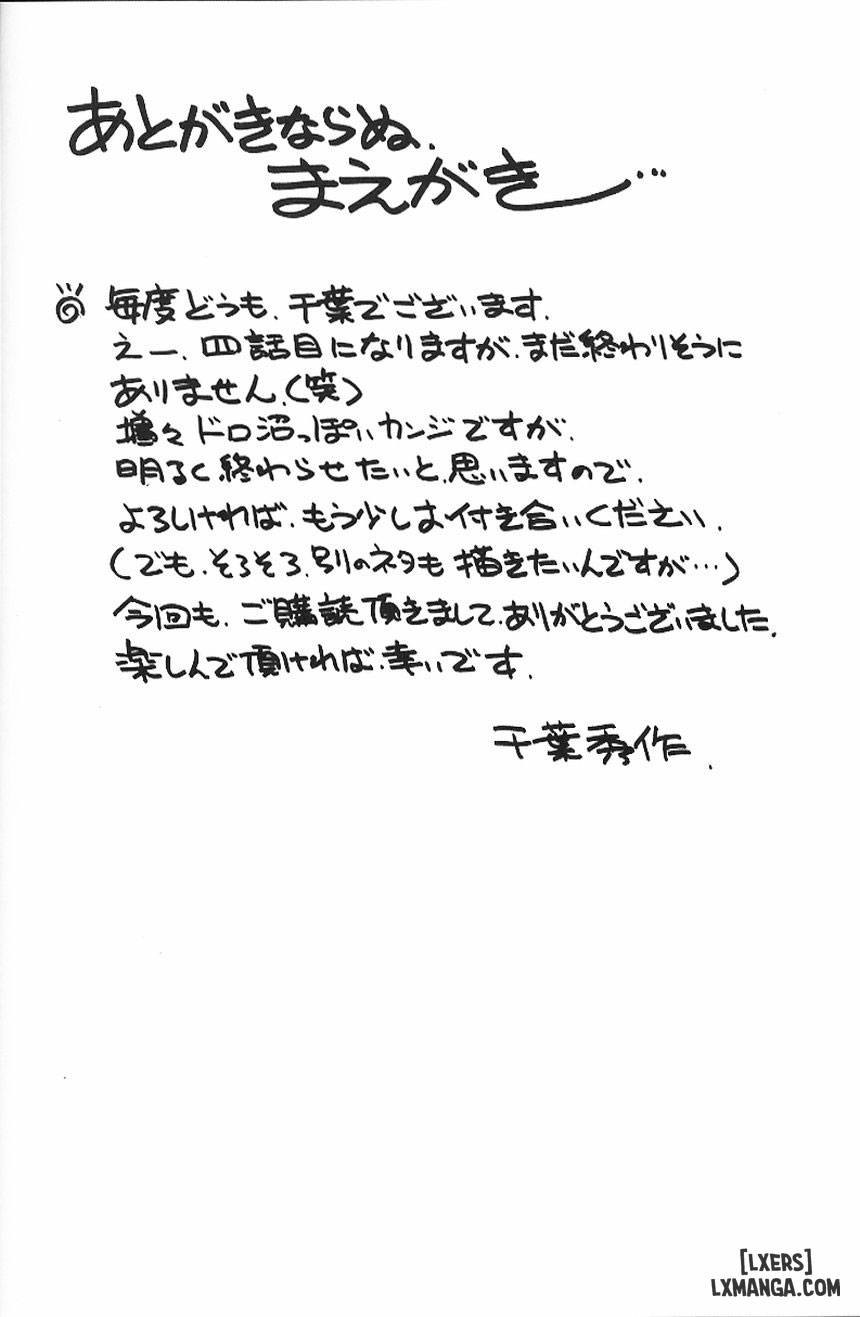 あとがきならぬ、
まえがき…
毎度どうも、千葉でございます。
えー、四話目になりますが、まだ終わりそうに
ありません。(笑)
増々ドロ沼っぽいカンジですが、
明るく終わらせたいと、思いますので、
よろしければ、もう少しお付き合いください。
(でも、そろそろ、別のネタも描きたいんですが…)
今回も、ご購読頂きまして、ありがとうございました。
楽しんで頂ければ、幸いです。
千葉秀作.
[LXERS]
LXMANGA.COM